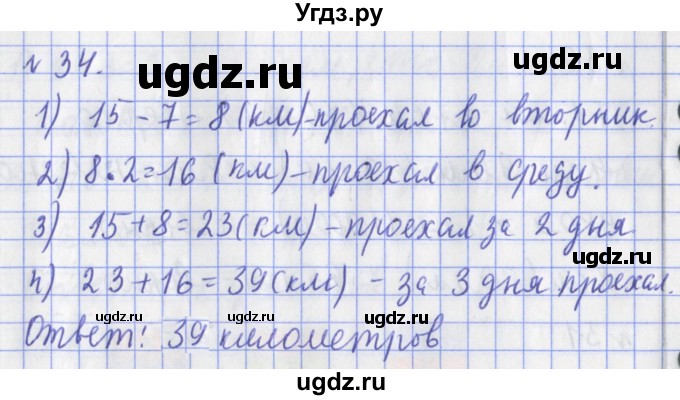 Угдз.ру
№ 34.
ugdz.ru ugdz.ru
1) 15 - 7 = 8 (км) - проехал во вторник.
2) 8 · 2 = 16 (км) - проехал в среду.
3) 15 + 8 = 23 (км) - проехал за 2 дня
4) 23 + 16 = 39 (км) - за 3 дня проехал.
Ответ: 39 километров
ugdz.ru ugdz.ru
ugdz.ru